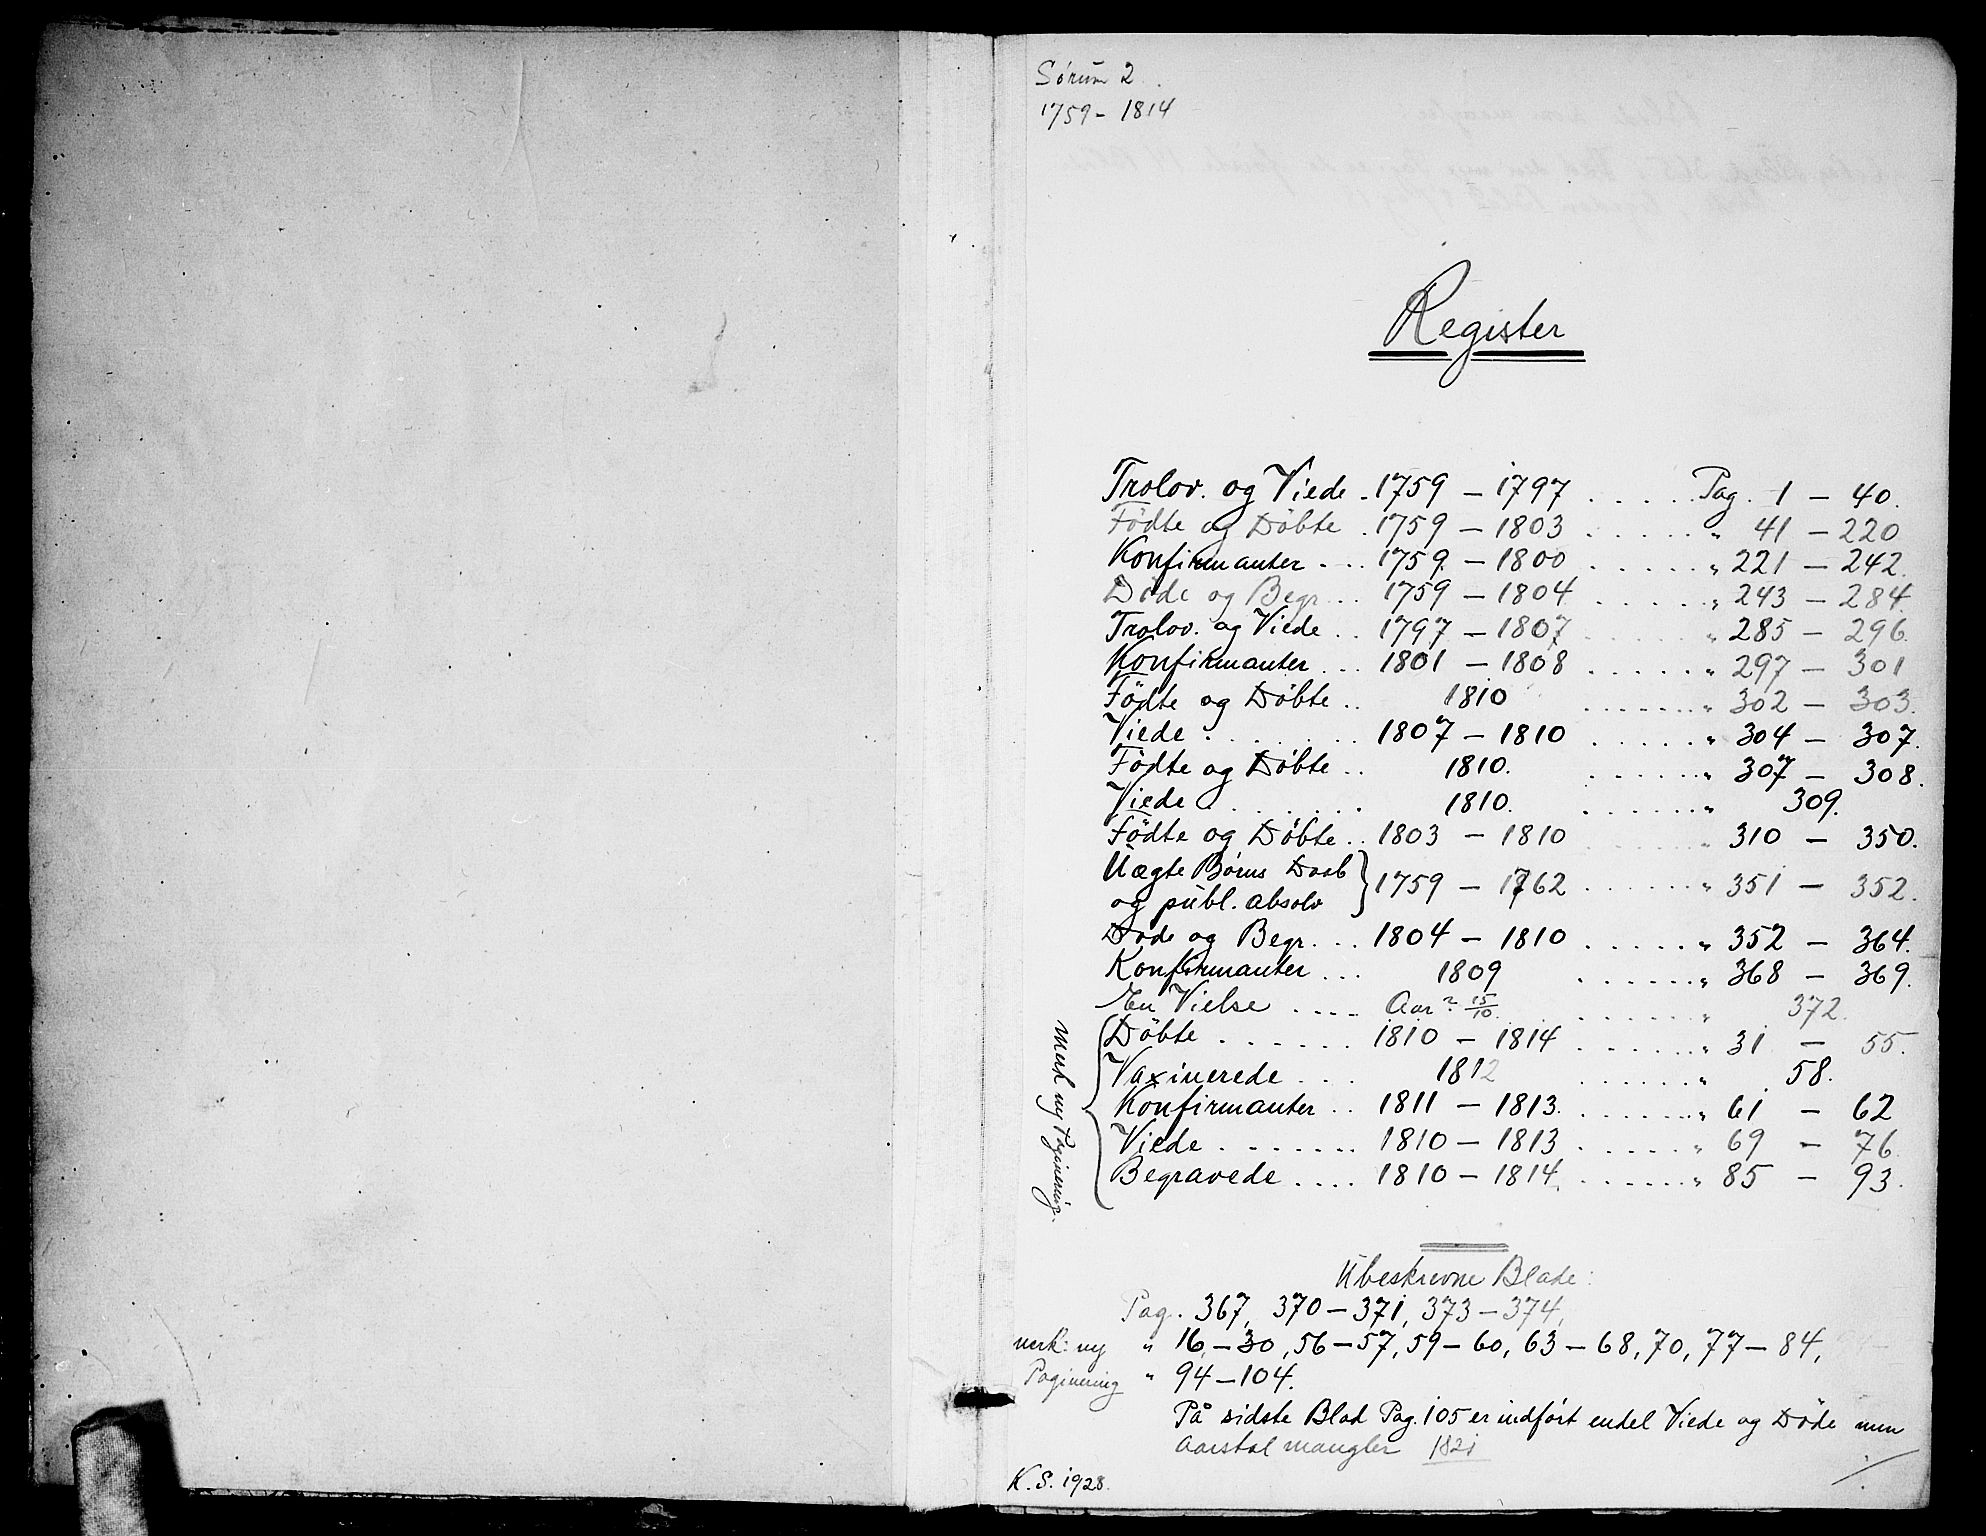 Sørum 2.
1759 - 1814
Register
Trolov. og Viede . 1759 - 1797 . . . . . Pag. 1 - 40.
Födte og Döbte . 1759 - 1803 . . . . . " 41 - 220
Konfirmanter . . . 1759 - 1800 . . . . . " 221 - 242.
Döde og Begr. . . 1759 - 1804 . . . . . " 243 - 284.
Trolov. og Viede . . 1797 - 1807 . . . . . " 285 - 296.
Konfirmanter . . . 1801 - 1808 . . . . . " 297 - 301
Födte og Döbte . . 1810 . . . . . " 302 - 303.
Viede . . . . . 1807 - 1810 . . . . . " 304 - 307.
Födte og Döbte . . 1810. . . . . . " 307 - 308.
Viede . . . . . 1810. . . . . . " 309.
Födte og Döbte . . 1803 - 1810 . . . . . " 310 - 350.
Uægte Børns Daab
og publ. absolv } 1759 - 1762 . . . . . " 351 - 352.
Døde og Begr. . . . 1804 - 1810 . . . . . " 352 - 364.
Konfirmanter . . . 1809 . . . . . " 368 - 369.
En Vielse . . . . Aar? 15/10. . . . . . " 372.
Merk ny Paginering.
Döbte . . . . . . 1810 - 1814 . . . . . " 31 - 55.
Vaxinerede . . . 1812 . . . . . " 58.
Konfirmanter . . 1811 - 1813. . . . . . " 61 - 62
Viede . . . . . . 1810 - 1813 . . . . . " 69 - 76
Begravede . . . . 1810 - 1814. . . . . . " 85 - 93.
Ubeskrevne Blade:
Pag. 367, 370 - 371, 373 - 374,
merk: ny " 16 - 30, 56 - 57, 59 - 60, 63 - 68, 70, 77 - 84,
Paginering " 94 - 104.
På sidste Blad Pag. 105 er indført endel Viede og Døde men
Aarstal mangler 1821
K. S. 1928.